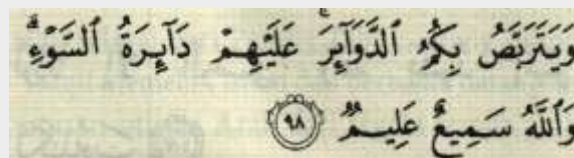 وَيَتَرَبَّصُ بِكُمُ ٱلدَّوَآئِرَ ۚ عَلَيْهِمْ دَآئِرَةُ ٱلسَّوْءِ ۗ
وَٱللَّهُ سَمِيعٌ عَلِيمٌ ٩٨